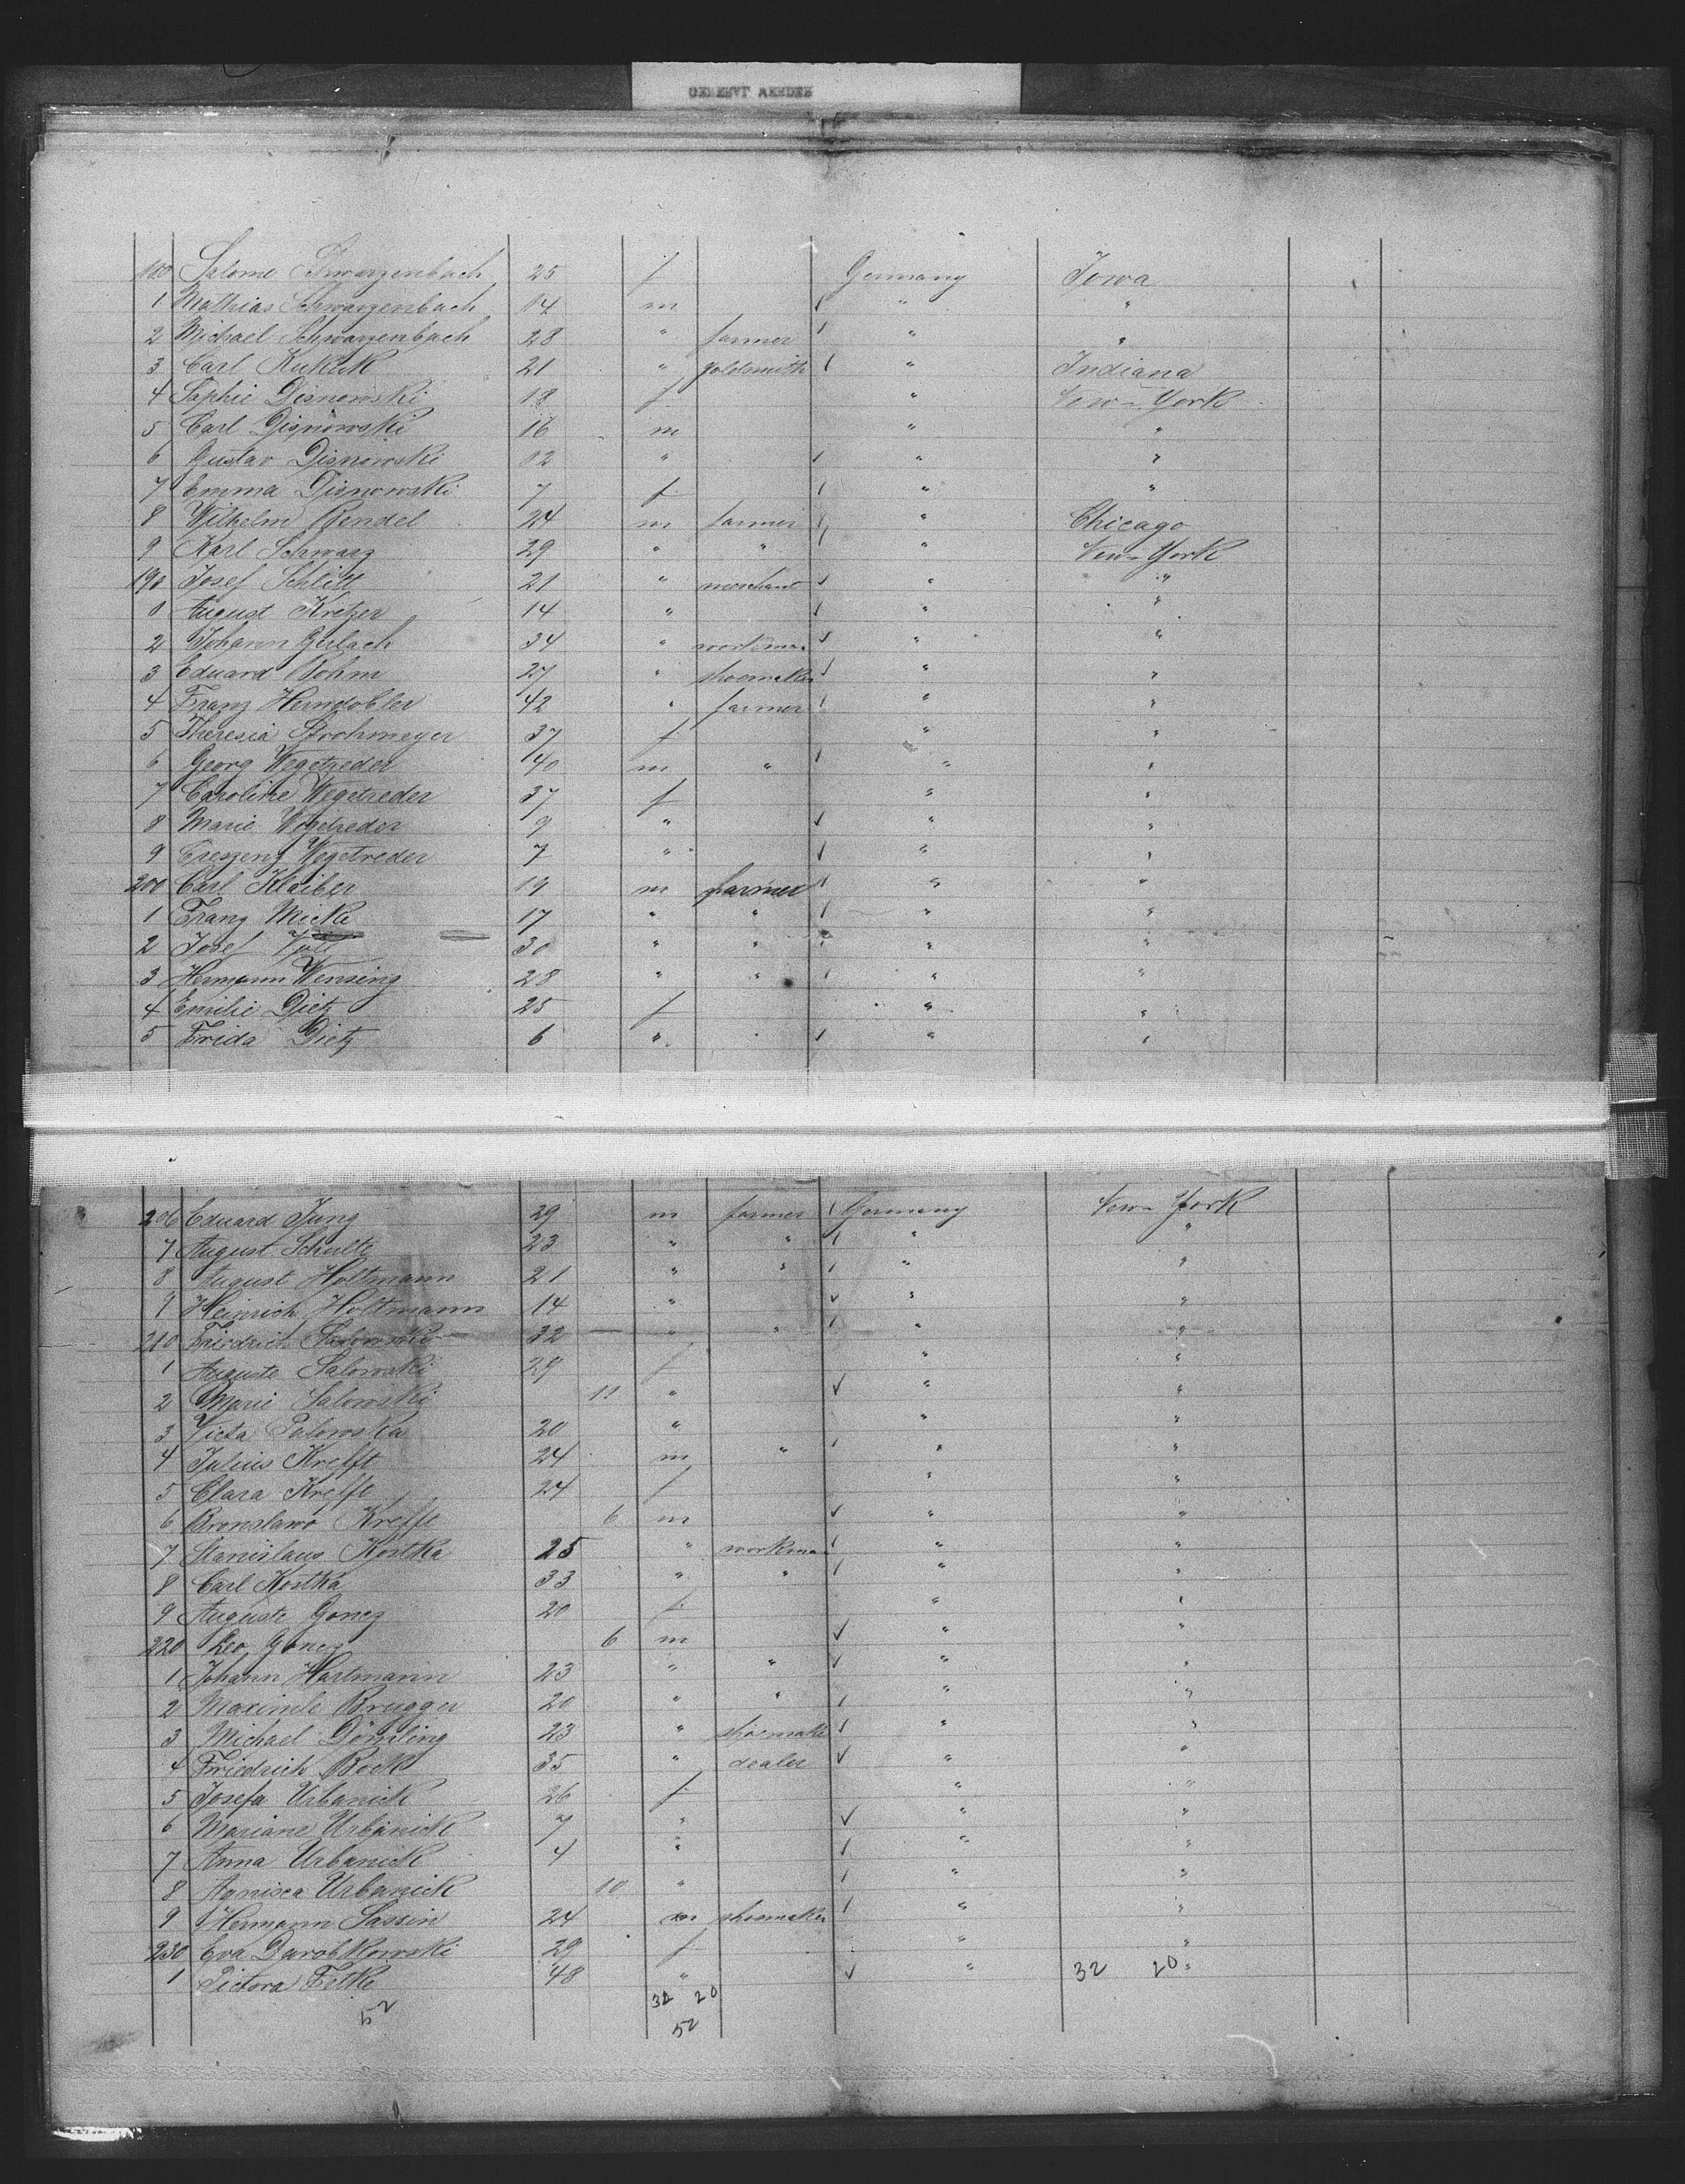 180 Salome Schwarzenbach 25 f Germany Iowa
1 Mathias Schwarzenbach 14 m " "
2 Michael Schwarzenbach 28 " farmer " "
3 Carl Kuklik 21 " goldsmith " Indiana
4 Sophie Dignowski 18 f " New-York
5 Carl Dignowski 16 m " "
6 Gustav Dignowski 12 " " "
7 Emma Dignowski 7 f " "
8 Wilhelm Rendel 24 m farmer " Chicago
9 Karl Schwarz 29 " " " New-York
190 Josef Schlitt 21 " merchant " "
1 August Kretzer 14 " " "
2 Johann Gerlach 34 " workman " "
3 Eduard Bohm 27 " shoemaker " "
4 Franz Herndobler 42 " farmer " "
5 Theresia Strohmeyer 37 f " "
6 Georg Wegetreder 40 m " " "
7 Caroline Wegetreder 37 f " "
8 Marie Wegetreder 9 " " "
9 Creszenz Wegetreder 7 " " "
200 Carl Klaiber 19 m farmer " "
1 Franz Micka 17 " " " "
2 Josef 30 " " " "
3 Hermann Wensing 28 " " " "
4 Emilie Dietz 25 f " "
5 Frida Dietz 6 " " "
206 Eduard Jung 29 m farmer Germany New-York
7 August Schulte 23 " " " "
8 August Holtmann 21 " " " "
9 Heinrich Holtmann 14 " " "
210 Friedrich Salowski 32 " " " "
1 Auguste Salowski 29 f " "
2 Marie Salowski 11 " " "
3 Victa Palowska 20 " " "
4 Julius Krefft 24 m " " "
5 Clara Krefft 24 f " "
6 Bronslawo Krefft 6 m " "
7 Stanislaus Kostka 25 " workman " "
8 Carl Kostka 33 " " " "
9 Auguste Goncz 20 f " "
220 Leo Goncz 6 m " "
1 Johann Hartmann 23 " " " "
2 Maximile Brugger 20 " " " "
3 Michael Dömling 23 " shoemaker " "
4 Friedrich Beck 35 " dealer " "
5 Josefa Urbanick 26 f " "
6 Mariane Urbanick 7 " " "
7 Anna Urbanick 4 " " "
8 Agnisca Urbanick 10 " " "
9 Hermann Sassin 24 m shoemaker " "
230 Eva Darobkowski 29 f " "
1 Pictora Fetke 48 " " 32 20 "
32 20
52 52